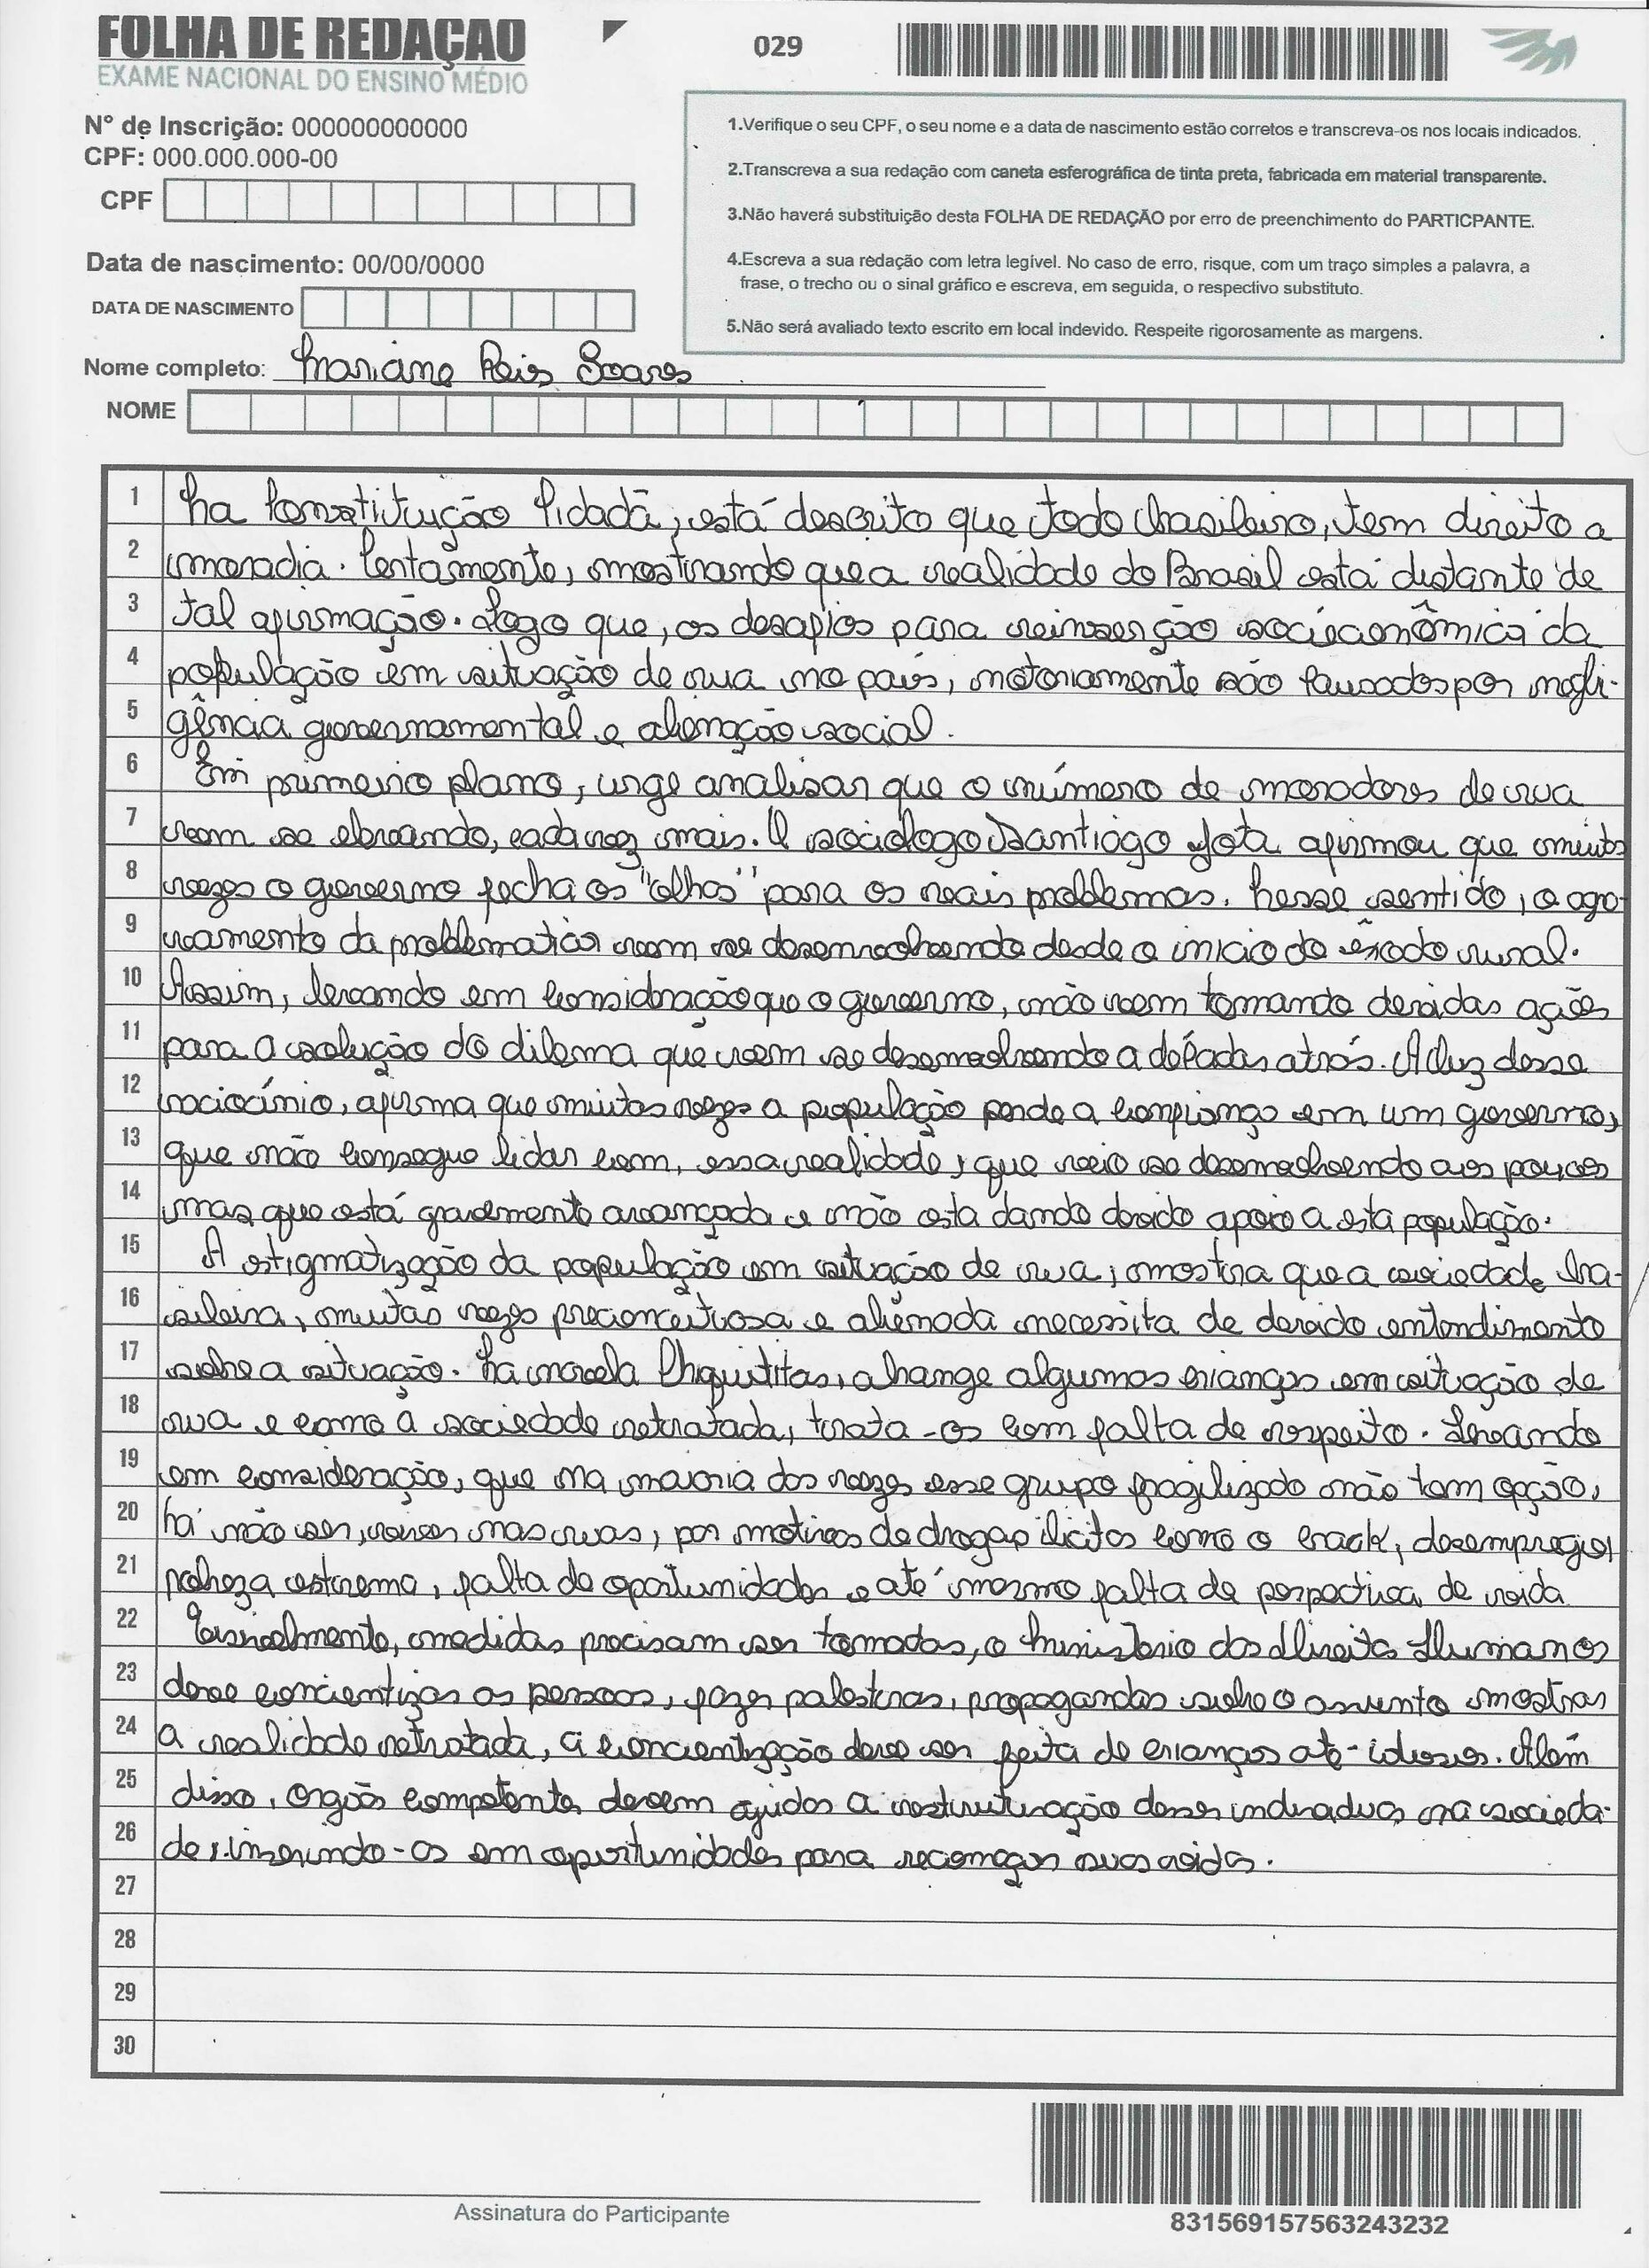 FOLHA DE REDAÇAO
EXAME NACIONAL DO ENSINO MÉDIO
029
Nº de Inscrição: 000000000000
CPF: 000.000.000-00
CPF
Data de nascimento: 00/00/0000
DATA DE NASCIMENTO
Nome completo: Mariane Reis Soares
NOME
1.Verifique o seu CPF, o seu nome e a data de nascimento estão corretos e transcreva-os nos locais indicados.
2.Transcreva a sua redação com caneta esferográfica de tinta preta, fabricada em material transparente.
3.Não haverá substituição desta FOLHA DE REDAÇÃO por erro de preenchimento do PARTICPANTE.
4.Escreva a sua redação com letra legível. No caso de erro, risque, com um traço simples a palavra, a
frase, o trecho ou o sinal gráfico e escreva, em seguida, o respectivo substituto.
5.Não será avaliado texto escrito em local indevido. Respeite rigorosamente as margens.
1 Na Constituição Cidadã, está descrito que todo brasileiro, tem direito a
2 moradia. Contamente, mostrando que a realidade do Brasil está distante de
3 tal afirmação. Logo que, os desafios para reinserção sociêconômica da
4 população em situação de rua no país, notoriamente são causados por negli-
5 gência governamental e alienação social.
6 Em primeiro plano, urge analisar que o número de moradores de rua
7 vem se elevando, cada vez mais. O sociólogo Santiago Jota afirmou que muitas
8 vezes o governo fecha os "olhos" para os reais problemas. Nesse sentido, o agra-
9 vamento da problemática vem se desenvolvendo desde o inicio do êxodo rural.
10 Assim, levando em considração que o governo, não vem tomando devidas ações
11 para a solução do dilema que vem se desenvolvendo a décadas atrás. A luz desse
12 raciocínio, afirma que muitas vezes a população perde a confiança em um governo,
13 que não consegue lidar com, essa realidade, que veio se desenvolvendo aos poucos
14 mas que está gravemente avançada e não esta dando devido apoio a esta população.
15 A estigmatização da população em situação de rua, mostra que a sociedade bra-
16 sileira, muitas vezes preconceituosa e alienada necessita de devido entendimento
17 sobre a situação. Na novela Chiquititas, abange algumas crianças em situação de
18 rua e como a sociedade retratada, trata-os com falta de respeito. Levando
19 em consideração, que na maioria das vezes esse grupo fragilizado não tem opção,
20 há não ser, viver nas ruas, por motivos de drogas ilicitas como o crack, desemprego,
21 pobreza extrema, falta de oportunidades e até mesmo falta de perspectiva de vida
22 medidas precisam ser tomadas, o Ministério dos Direitos Humanos
23 deve concientizar as pessoas, fazer palestras, propagandas sobre o assunto mostrar
24 a realidade retratada, a concientização deve ser feita de crianças ate idosos. Além
25 disso, orgãos competentes devem ajudar a restruturação desses individuos na socieda-
26 de, inserindo-os em oportunidades para recomeçar suas vidas.
27
28
29
30
Assinatura do Participante
831569157563243232